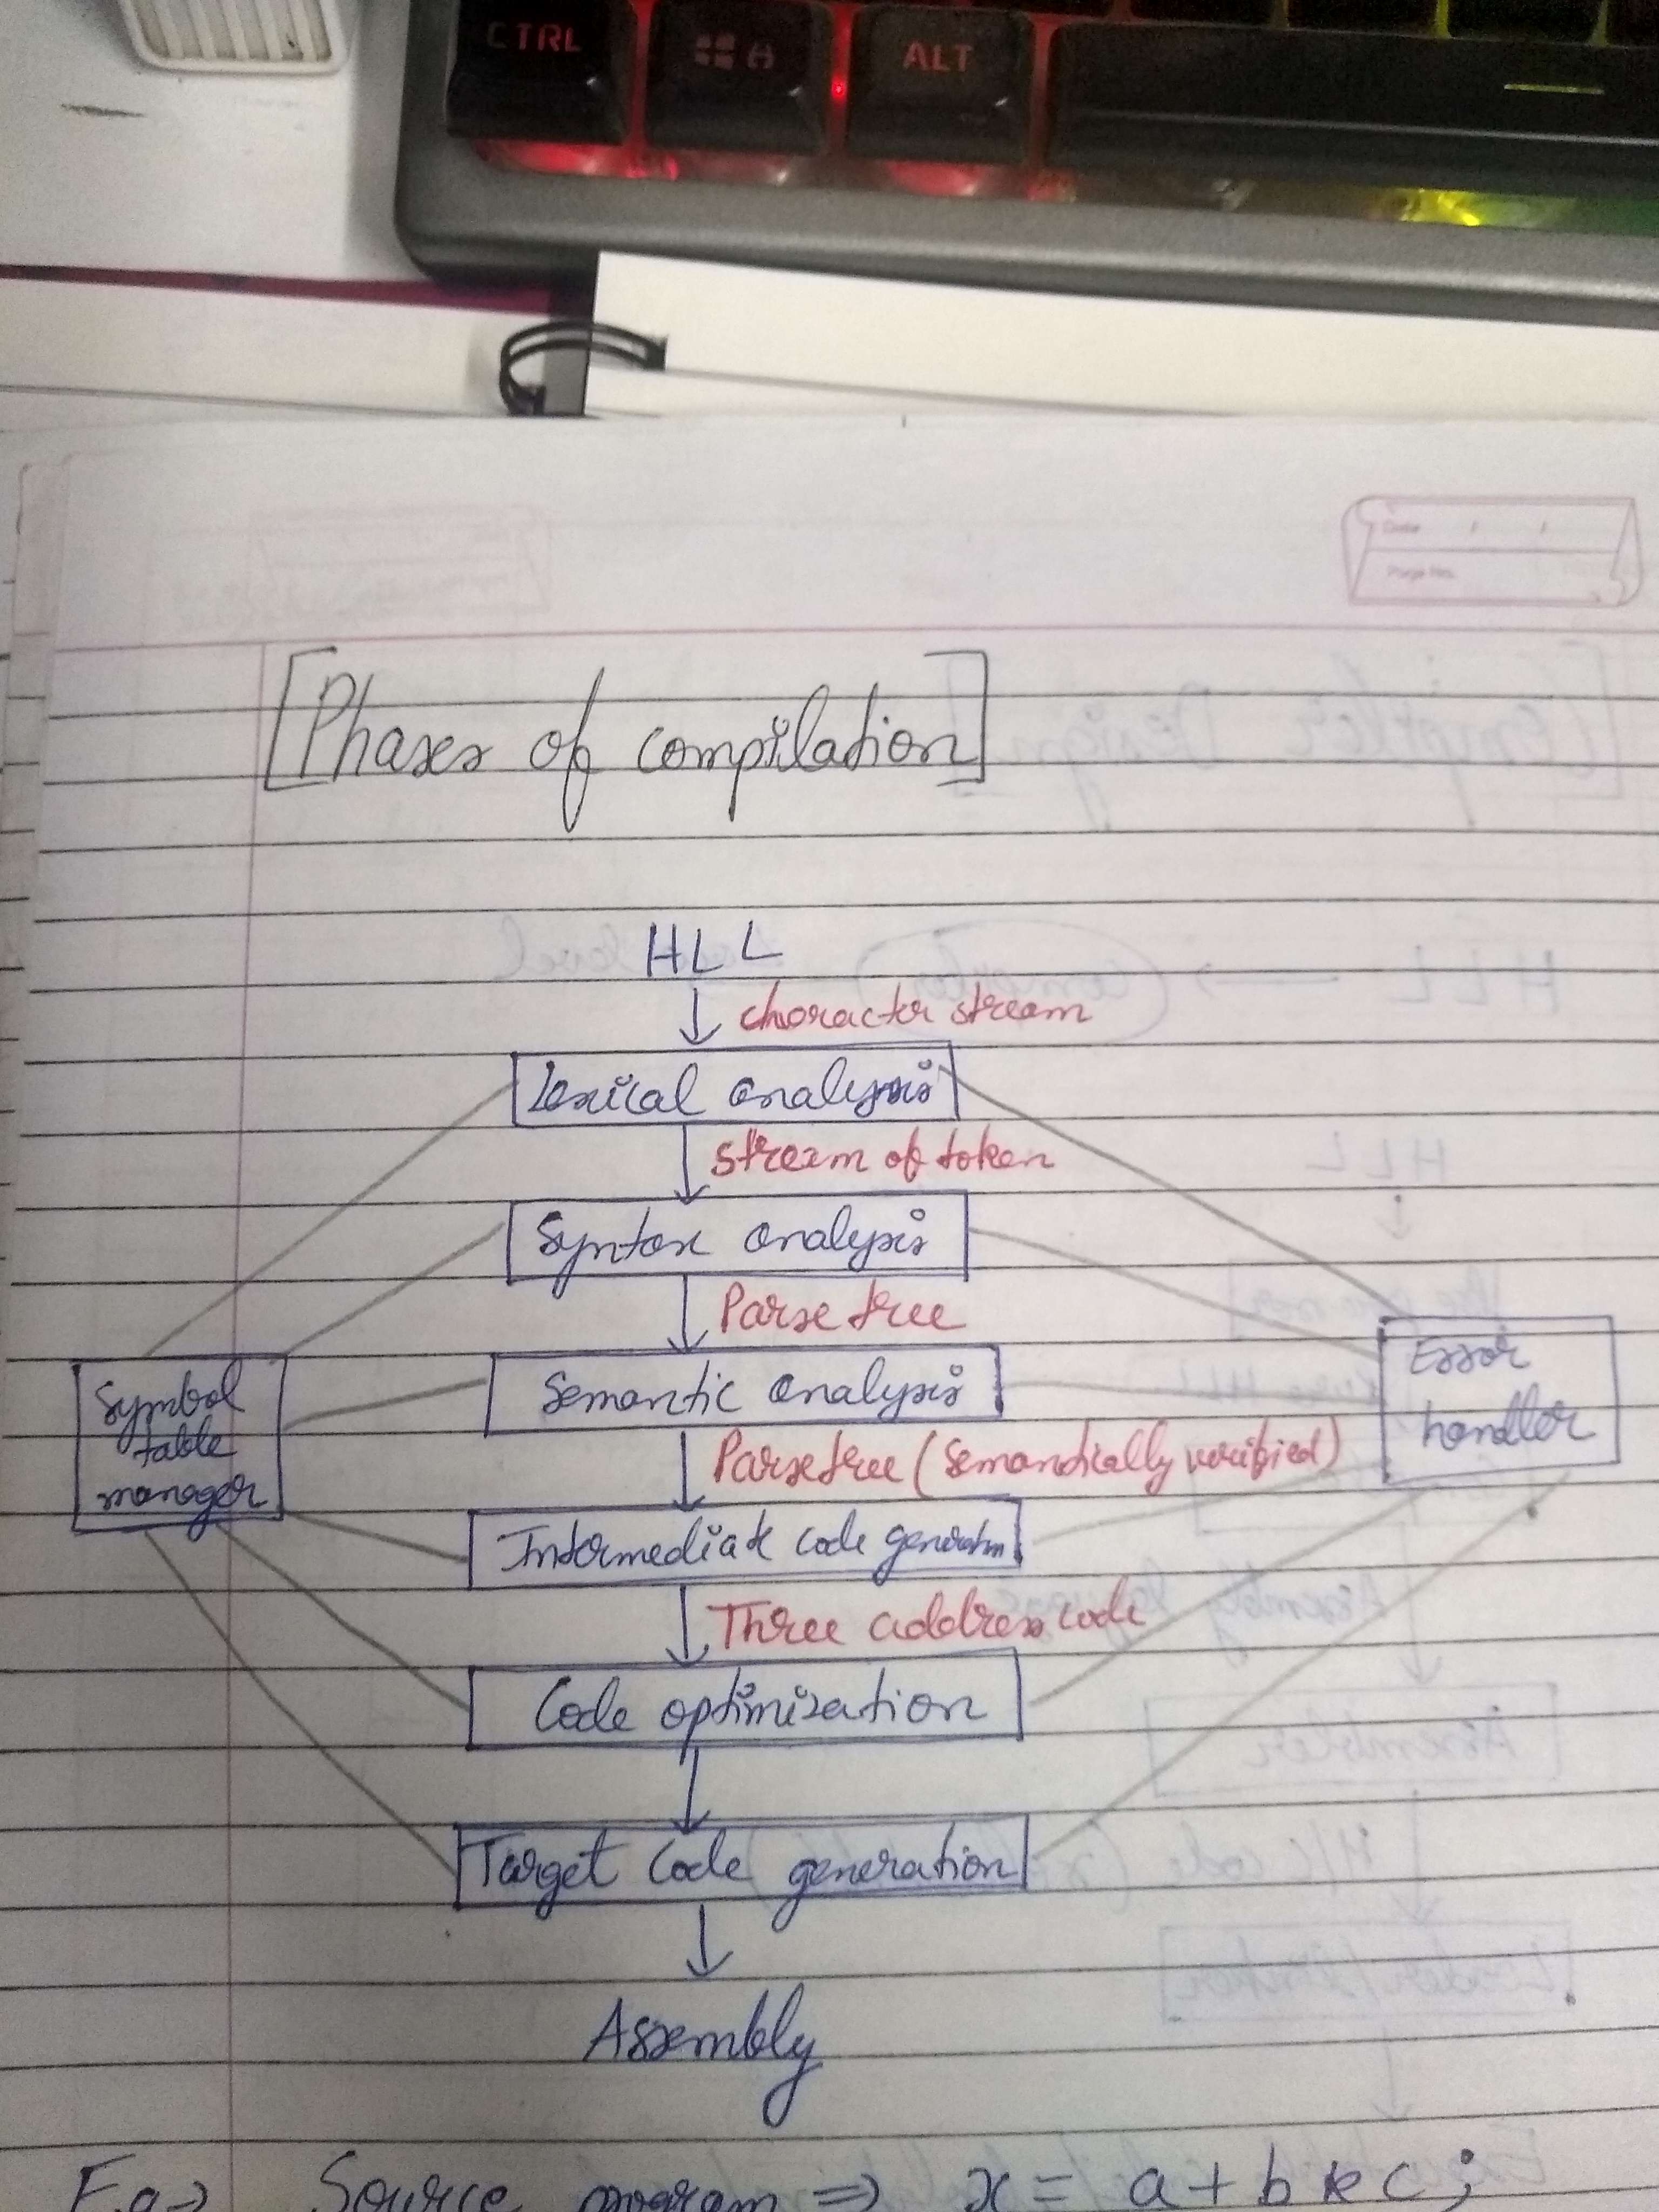 CTRL
ALT
Date / /
Page No.
[Phases of compilation]
HLL
character stream
Lexical analysis
stream of token
Syntax analysis
Parse tree
Semantic analysis
Parse tree (Semantically verified)
Intermediate code generation
Three address code
Code optimization
Target code generation
Assembly
Symbol
table
manager
Error
handler
Eg => Source program => x = a + b * c ;